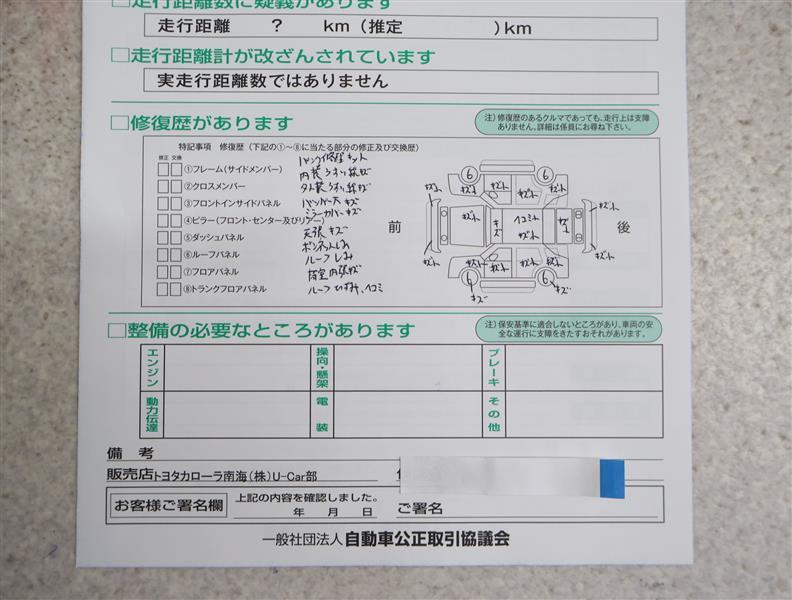 □走行距離数に疑義があります
走行距離 ? km（推定 ）km
□走行距離計が改ざんされています
実走行距離数ではありません
□修復歴があります
注）修復歴のあるクルマであっても、走行上は支障
ありません。詳細は係員にお尋ね下さい。
特記事項 修復歴（下記の①～⑧に当たる部分の修正及び交換歴）
修正 交換
①フレーム（サイドメンバー）
②クロスメンバー
③フロントインサイドパネル
④ピラー（フロント・センター及びリヤー）
⑤ダッシュパネル
⑥ルーフパネル
⑦フロアパネル
⑧トランクフロアパネル
パンク修理キット
内装うすり線キズ
外装うすり線キズ
バンパー大キズ
ミラーカバーキズ
天張キズ
ボンネットしみ
ルーフしみ
荷室内張キズ
ルーフひずみ、ヘコミ
前
後
6
6
6
6
キズト
キズト
キズト
キズト
キズト
キズト
キズト
ヘコミト
キズト
キズ
キズト
キズト
キズト
キズト
キズト
キズト
キズ
キズ
□整備の必要なところがあります
注）保安基準に適合しないところがあり、車両の安
全な運行に支障をきたすおそれがあります。
エンジン
操向・懸架
ブレーキ
動力伝達
電装
その他
備考
販売店トヨタカローラ南海（株）U-Car部
お客様ご署名欄
上記の内容を確認しました。
年 月 日
ご署名
一般社団法人 自動車公正取引協議会